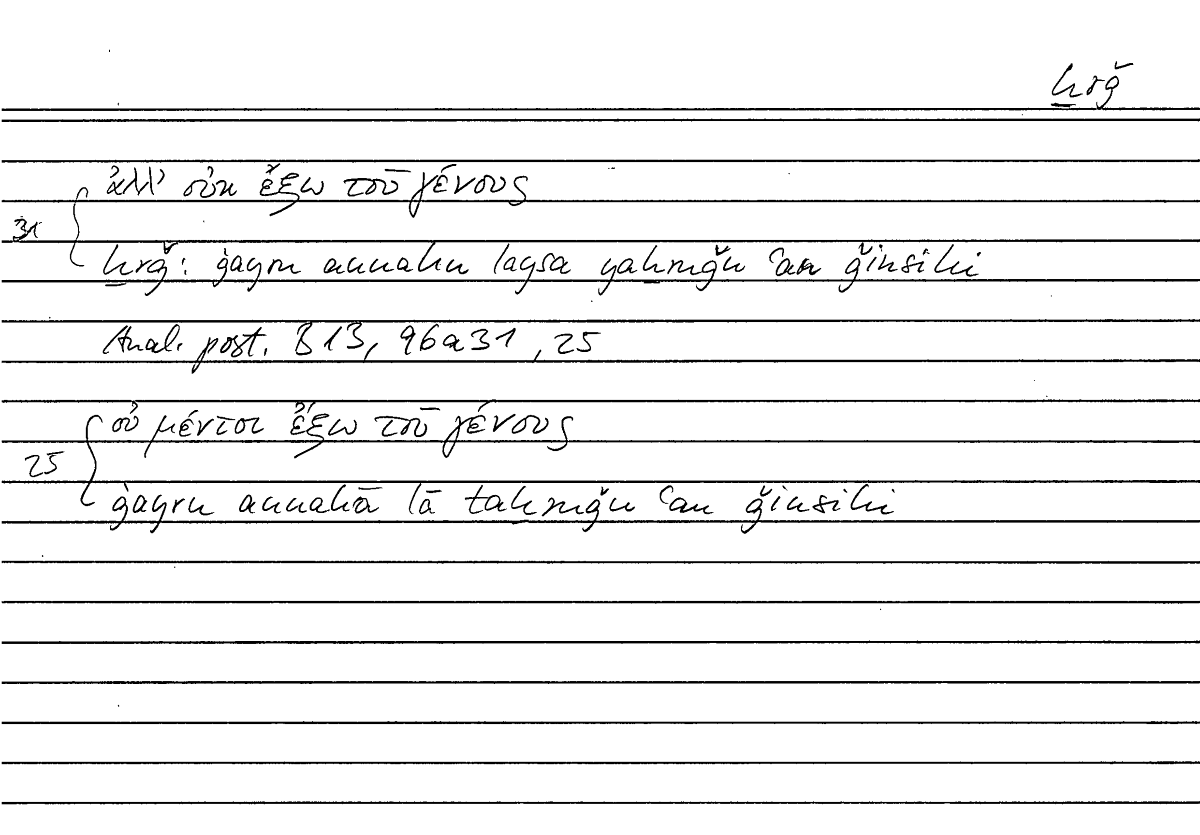 ḫrǧ
ἀλλ' οὐκ ἔξω τοῦ γένους
31
ḫrǧ: ġayru annahu laysa yaḫruǧu ʿan ǧinsihi
Anal. post. B 13, 96a31, 25
οὐ μέντοι ἔξω τοῦ γένους
25
ġayru annahā lā taḫruǧu ʿan ǧinsihi